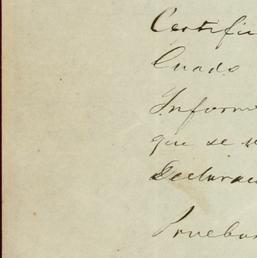 Certifi
Cuado
Inform
que se
Declarac
Pruebas